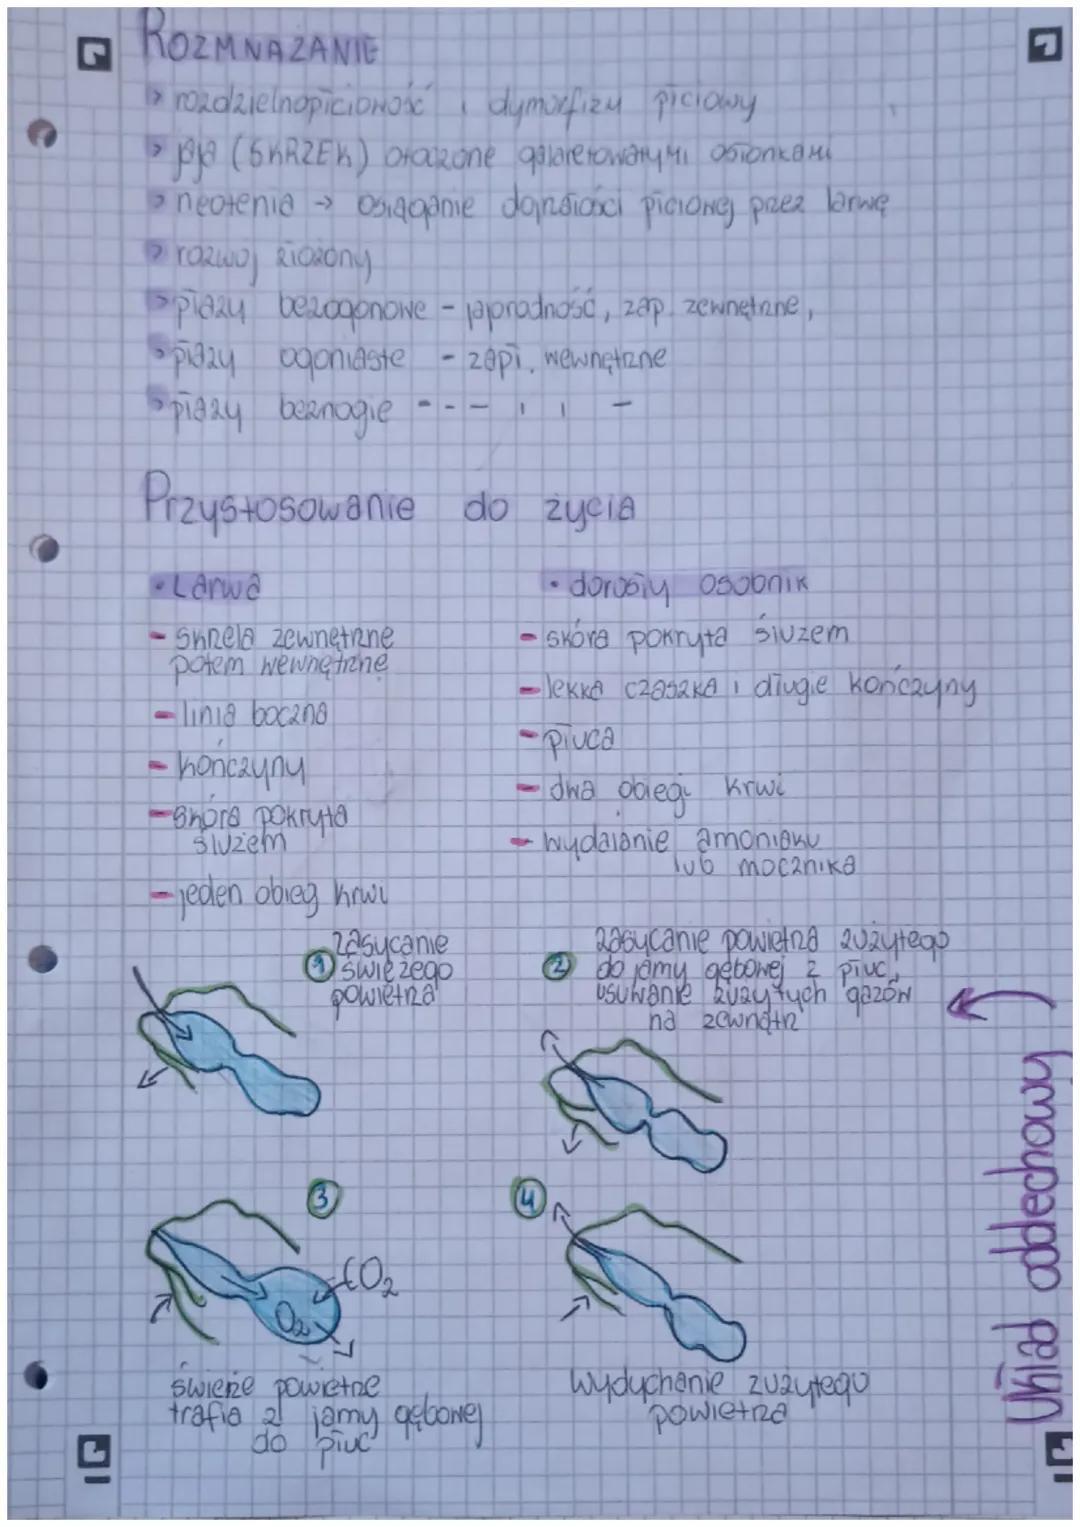 ROZMNAŻANIE
> rozdzielnopłciowość i dymorfizm płciowy
> jaja (SKRZEK) otoczone galaretowatymi osłonkami
> neotenia → osiąganie dojrzałości płciowej przez larwę
> rozwój złożony
> płazy bezogonowe - jajorodność, zap. zewnętrzne,
> płazy ogoniaste - zapł. wewnętrzne
> płazy beznogie - - - ı ı -
Przystosowanie do życia
• Larwa
- skrzela zewnętrzne
potem wewnętrzne
- linia boczna
- kończyny
- skóra pokryta
śluzem
- jeden obieg krwi
• dorosły osobnik
- skóra pokryta śluzem
- lekka czaszka i długie kończyny
- płuca
- dwa obiegi krwi
- wydalanie amoniaku
lub mocznika
① zasycanie
świeżego
powietrza
② zasycanie powietrza zużytego
do jamy gębowej z płuc,
usuwanie zużytych gazów
na zewnątrz
③
CO₂
O₂
świeże powietrze
trafia z jamy gębowej
do płuc
④
wydychanie zużytego
powietrza
Układ oddechowy